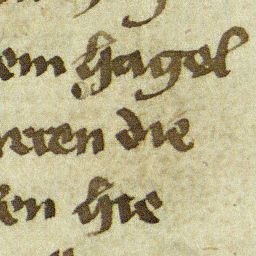 em hagel
neren die
en hie